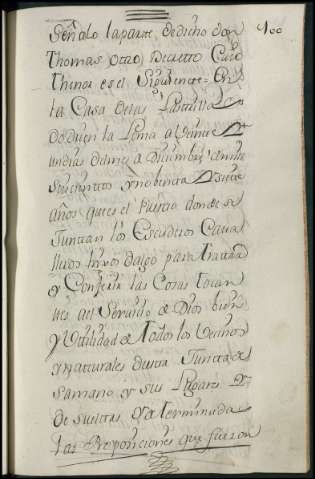 Señalo la parte, de dicho don
100
Thomas otro Decretto Cuio
Thenor es el Siguiente= En
la Casa de las
de la Loma a Veinte
un dias del mes de Diciumbre de mill
Seiscientos y nobenta
años que es el Puesto donde se
Junttan los Escuderos Cava
lleros hixos dalgo para tratar
y Conferir las Cosas tocan
tes al Servicio de Dios bien
y Utilidad de todos los Vecinos
y natturales desta Juntta de
Samano y sus Lugares
de sueltas
las Proposiciones que fueron